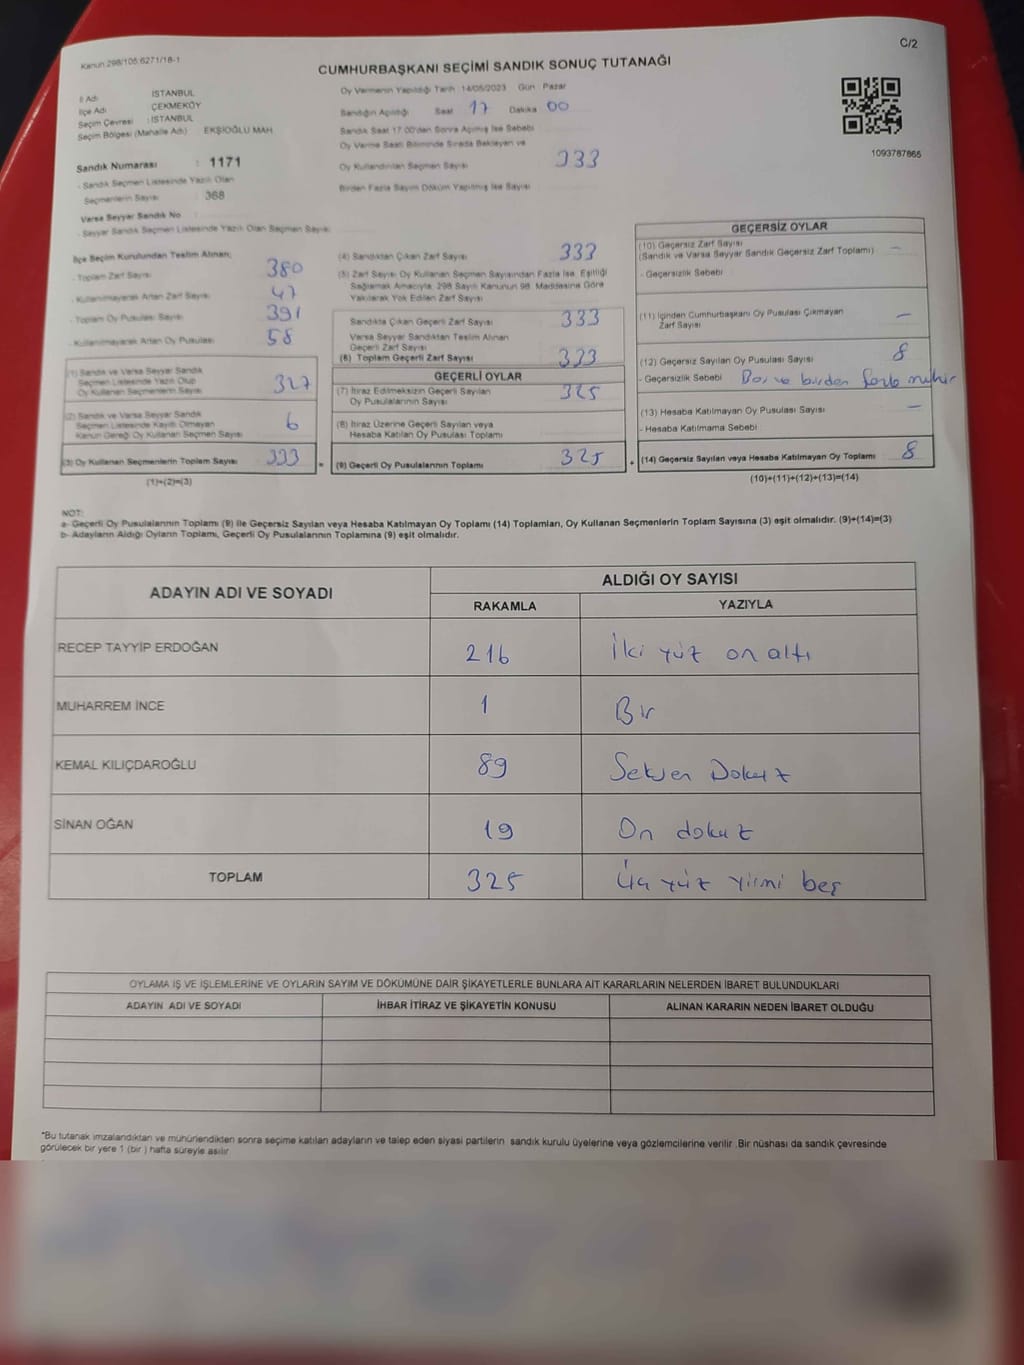 Kanun:298/105:6271/18-1
C/2
CUMHURBAŞKANI SEÇİMİ SANDIK SONUÇ TUTANAĞI
İl Adı : İSTANBUL
İlçe Adı : ÇEKMEKÖY
Seçim Çevresi : İSTANBUL
Seçim Bölgesi (Mahalle Adı) EKŞİOĞLU MAH
Sandık Numarası : 1171
- Sandık Seçmen Listesinde Yazılı Olan
Seçmenlerin Sayısı : 368
Varsa Seyyar Sandık No
- Seyyar Sandık Seçmen Listesinde Yazılı Olan Seçmen Sayısı
Oy Vermenin Yapıldığı Tarih 14/05/2023 Gün Pazar
Sandığın Açıldığı Saat 17 Dakika 00
Sandık Saat 17:00'dan Sonra Açılmış İse Sebebi
Oy Verme Saati Bitiminde Sırada Bekleyen ve
Oy Kullandırılan Seçmen Sayısı 333
Birden Fazla Sayım Döküm Yapılmış İse Sayısı
1093787865
İlçe Seçim Kurulundan Teslim Alınan;
- Toplam Zarf Sayısı 380
- Kullanılmayarak Artan Zarf Sayısı 47
- Toplam Oy Pusulası Sayısı 391
- Kullanılmayarak Artan Oy Pusulası 58
(1) Sandık ve Varsa Seyyar Sandık
Seçmen Listesinde Yazılı Olup
Oy Kullanan Seçmenlerin Sayısı 327
(2) Sandık ve Varsa Seyyar Sandık
Seçmen Listesinde Kayıtlı Olmayan
Kanun Gereği Oy Kullanan Seçmen Sayısı 6
(3) Oy Kullanan Seçmenlerin Toplam Sayısı 333 =
(1)+(2)=(3)
(4) Sandıktan Çıkan Zarf Sayısı 333
(5) Zarf Sayısı Oy Kullanan Seçmen Sayısından Fazla İse, Eşitliği
Sağlamak Amacıyla, 298 Sayılı Kanunun 98. Maddesine Göre
Yakılarak Yok Edilen Zarf Sayısı
Sandıkta Çıkan Geçerli Zarf Sayısı 333
Varsa Seyyar Sandıktan Teslim Alınan
Geçerli Zarf Sayısı
(6) Toplam Geçerli Zarf Sayısı 333
GEÇERLİ OYLAR
(7) İtiraz Edilmeksizin Geçerli Sayılan
Oy Pusulalarının Sayısı 325
(8) İtiraz Üzerine Geçerli Sayılan veya
Hesaba Katılan Oy Pusulası Toplamı
(9) Geçerli Oy Pusulalarının Toplamı 325 +
GEÇERSİZ OYLAR
(10) Geçersiz Zarf Sayısı
(Sandık ve Varsa Seyyar Sandık Geçersiz Zarf Toplamı) -
- Geçersizlik Sebebi
(11) İçinden Cumhurbaşkanı Oy Pusulası Çıkmayan
Zarf Sayısı -
(12) Geçersiz Sayılan Oy Pusulası Sayısı 8
- Geçersizlik Sebebi Boş ve birden fazla mühür
(13) Hesaba Katılmayan Oy Pusulası Sayısı -
- Hesaba Katılmama Sebebi
(14) Geçersiz Sayılan veya Hesaba Katılmayan Oy Toplamı 8
(10)+(11)+(12)+(13)=(14)
NOT:
a- Geçerli Oy Pusulalarının Toplamı (9) ile Geçersiz Sayılan veya Hesaba Katılmayan Oy Toplamı (14) Toplamları, Oy Kullanan Seçmenlerin Toplam Sayısına (3) eşit olmalıdır. (9)+(14)=(3)
b- Adayların Aldığı Oyların Toplamı, Geçerli Oy Pusulalarının Toplamına (9) eşit olmalıdır.
ADAYIN ADI VE SOYADI
ALDIĞI OY SAYISI
RAKAMLA YAZIYLA
RECEP TAYYİP ERDOĞAN 216 İki yüz on altı
MUHARREM İNCE 1 Bir
KEMAL KILIÇDAROĞLU 89 Seksen Dokuz
SİNAN OĞAN 19 On dokuz
TOPLAM 325 Üç yüz yirmi beş
OYLAMA İŞ VE İŞLEMLERİNE VE OYLARIN SAYIM VE DÖKÜMÜNE DAİR ŞİKAYETLERLE BUNLARA AİT KARARLARIN NELERDEN İBARET BULUNDUKLARI
ADAYIN ADI VE SOYADI İHBAR İTİRAZ VE ŞİKAYETİN KONUSU ALINAN KARARIN NEDEN İBARET OLDUĞU
*Bu tutanak imzalandıktan ve mühürlendikten sonra seçime katılan adayların ve talep eden siyasi partilerin sandık kurulu üyelerine veya gözlemcilerine verilir .Bir nüshası da sandık çevresinde
görülecek bir yere 1 (bir ) hafta süreyle asılır